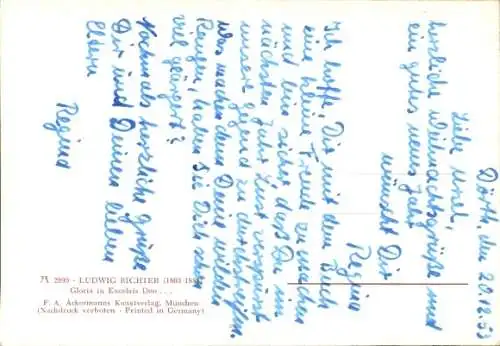 den 20.12.53
Liebe
herzliche Weihnachtsgrüße und
ein gutes neues Jahr
wünscht Dir
Regina
Ich hoffe, Dir mit dem Buch
eine kleine Freude zu machen
und bin sicher daß Du im
nächsten Jahr Lust verspürst
unsere Gegend zu durchstreifen.
Was machen denn Deine wilden
Rangen, haben sie Dich sehr
viel geärgert?
Nochmals herzliche Grüße
Dir und Deinen lieben
Eltern
Regina
2999 - LUDWIG RICHTER (1803-188
Gloria in Excelsis Deo . . .
F. A. Ackermanns Kunstverlag, München
(Nachdruck verboten - Printed in Germany)